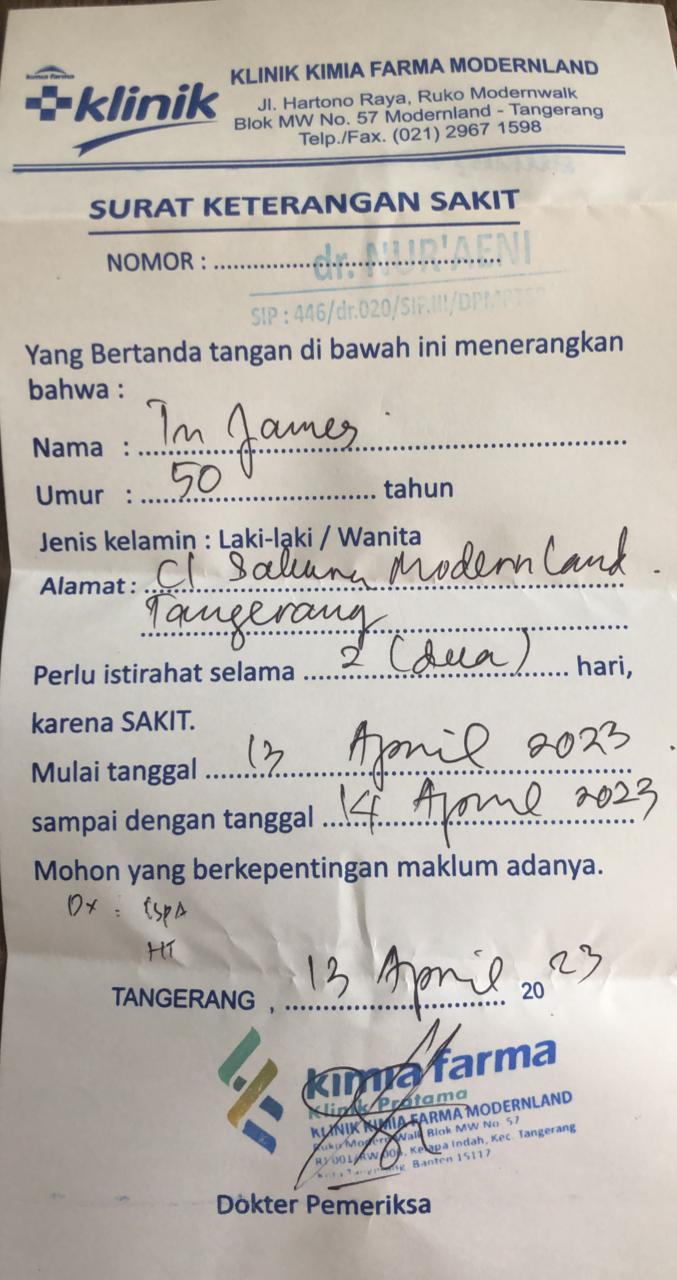 kimia farma
klinik
KLINIK KIMIA FARMA MODERNLAND
Jl. Hartono Raya, Ruko Modernwalk
Blok MW No. 57 Modernland - Tangerang
Telp./Fax. (021) 2967 1598
SURAT KETERANGAN SAKIT
NOMOR : ....................
dr. NUR'AENI
SIP : 446/dr.020/SIP.III/DPMPTSP
Yang Bertanda tangan di bawah ini menerangkan
bahwa :
Nama : Tn James
Umur : 50 tahun
Jenis kelamin : Laki-laki / Wanita
Alamat : Modern Land
Tangerang
Perlu istirahat selama 2 (dua) hari,
karena SAKIT.
Mulai tanggal 13 April 2023
sampai dengan tanggal 14 April 2023
Mohon yang berkepentingan maklum adanya.
Dx : ISPA
HT
TANGERANG , 13 April 2023
kimia farma
Klinik Pratama
KLINIK KIMIA FARMA MODERNLAND
Ruko Modern Walk Blok MW No. 57
Kelapa Indah, Kec. Tangerang
Banten 15117
Dokter Pemeriksa